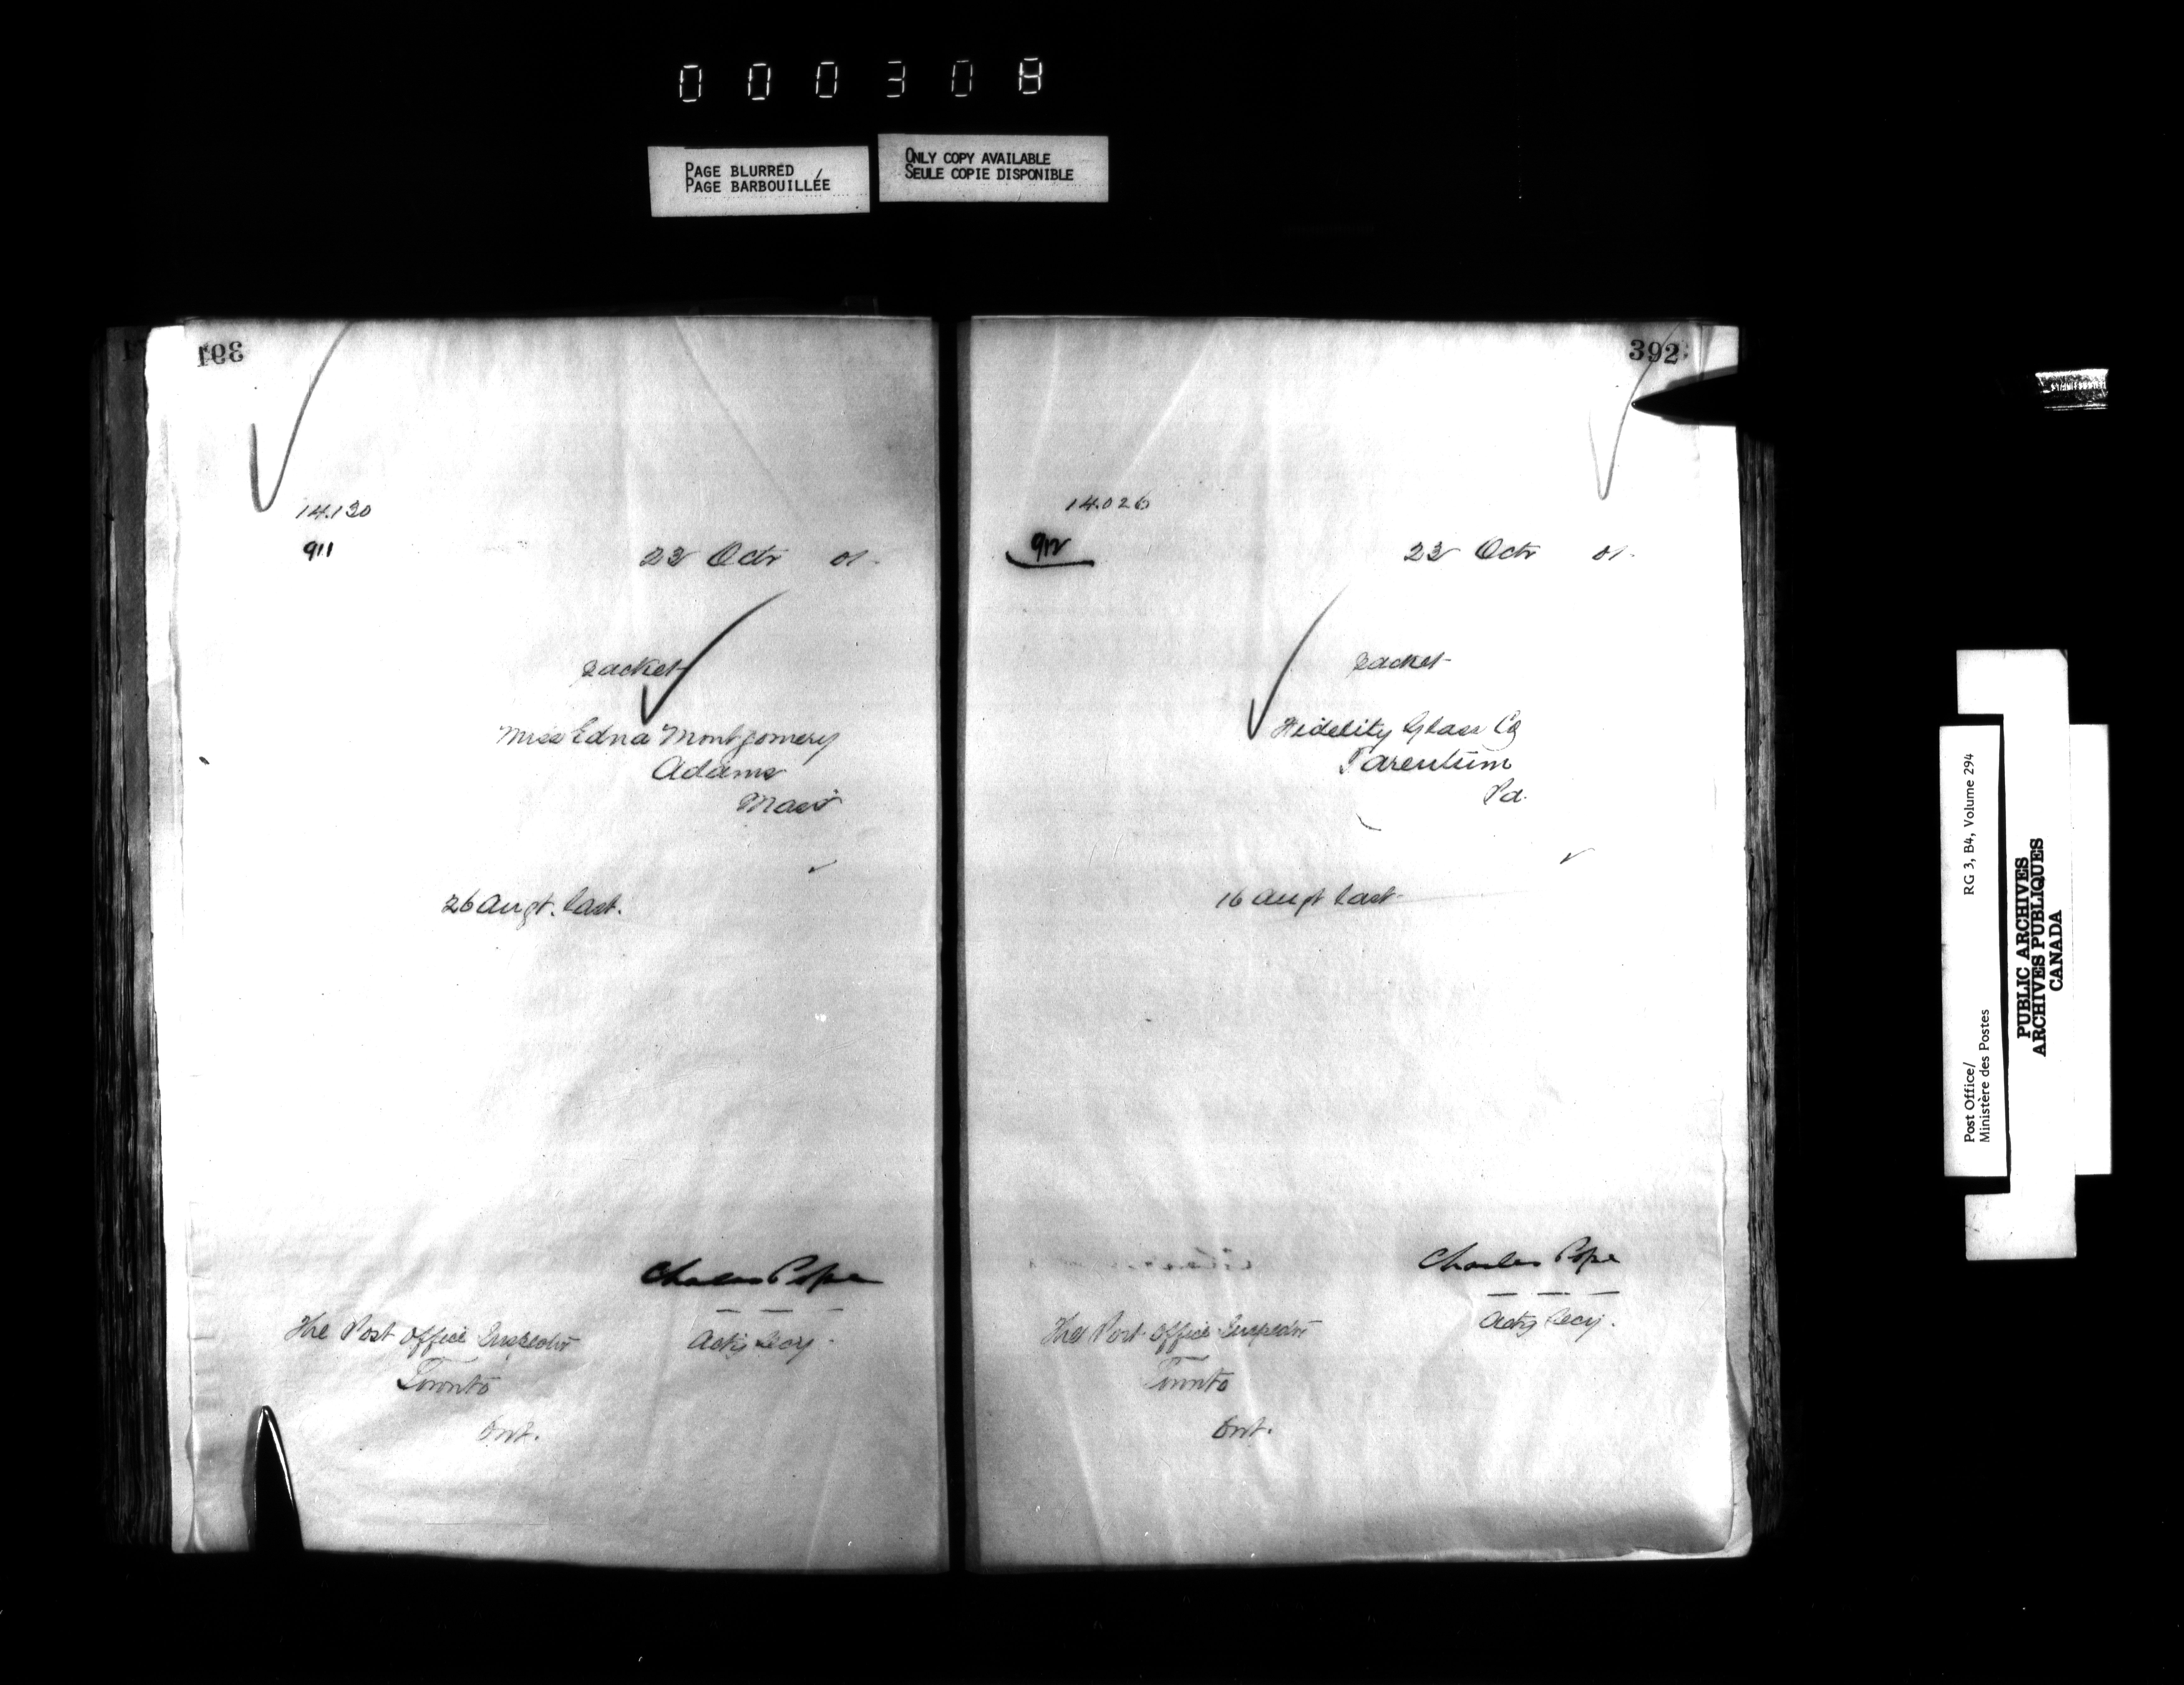 000308
PAGE BLURRED
PAGE BARBOUILLÉE
ONLY COPY AVAILABLE
SEULE COPIE DISPONIBLE
391
14.130
911
23 Octr 01.
packet
Miss Edna Montgomery
Adams
Mass
26 Augt. last.
Charles Pope
Actg Secy.
The Post Office Inspector
Toronto
Ont.
392
14.026
912
23 Octr 01.
packet
Fidelity Glass Co
Tarentum
Pa.
16 Augt last
Charles Pope
Actg Secy.
The Post Office Inspector
Toronto
Ont.
Post Office/
Ministère des Postes
RG 3, B4, Volume 294
PUBLIC ARCHIVES
ARCHIVES PUBLIQUES
CANADA